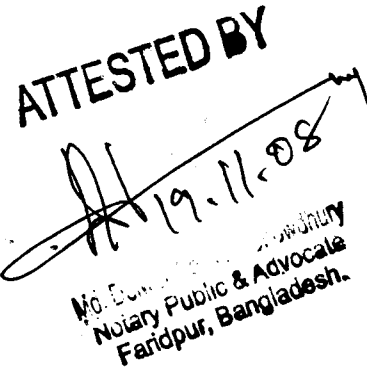 ATTESTED BY
19.11.08
Md.
Notary Public & Advocate
Faridpur, Bangladesh.